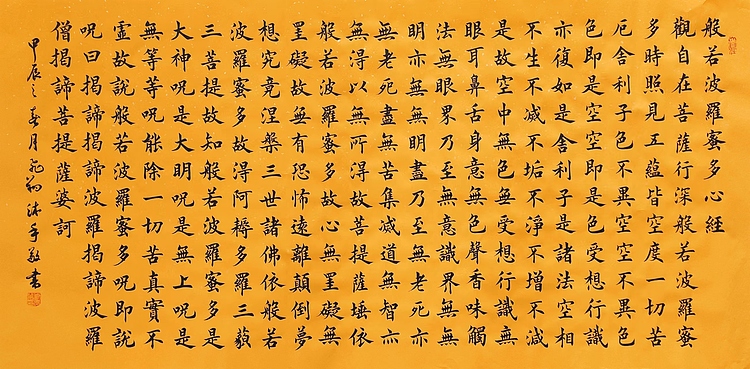 般若波羅蜜多心經
觀自在菩薩行深般若波羅蜜
多時照見五蘊皆空度一切苦
厄舍利子色不異空空不異色
色即是空空即是色受想行識
亦復如是舍利子是諸法空相
不生不滅不垢不淨不增不減
是故空中無色無受想行識無
眼耳鼻舌身意無色聲香味觸
法無眼界乃至無意識界無無
明亦無無明盡乃至無老死亦
無老死盡無苦集滅道無智亦
無得以無所得故菩提薩埵依
般若波羅蜜多故心無罣礙無
罣礙故無有恐怖遠離顛倒夢
想究竟涅槃三世諸佛依般若
波羅蜜多故得阿耨多羅三藐
三菩提故知般若波羅蜜多是
大神呪是大明呪是無上呪是
無等等呪能除一切苦真實不
虛故說般若波羅蜜多呪即說
呪曰揭諦揭諦波羅揭諦波羅
僧揭諦菩提薩婆訶
甲辰之春月沐手敬書